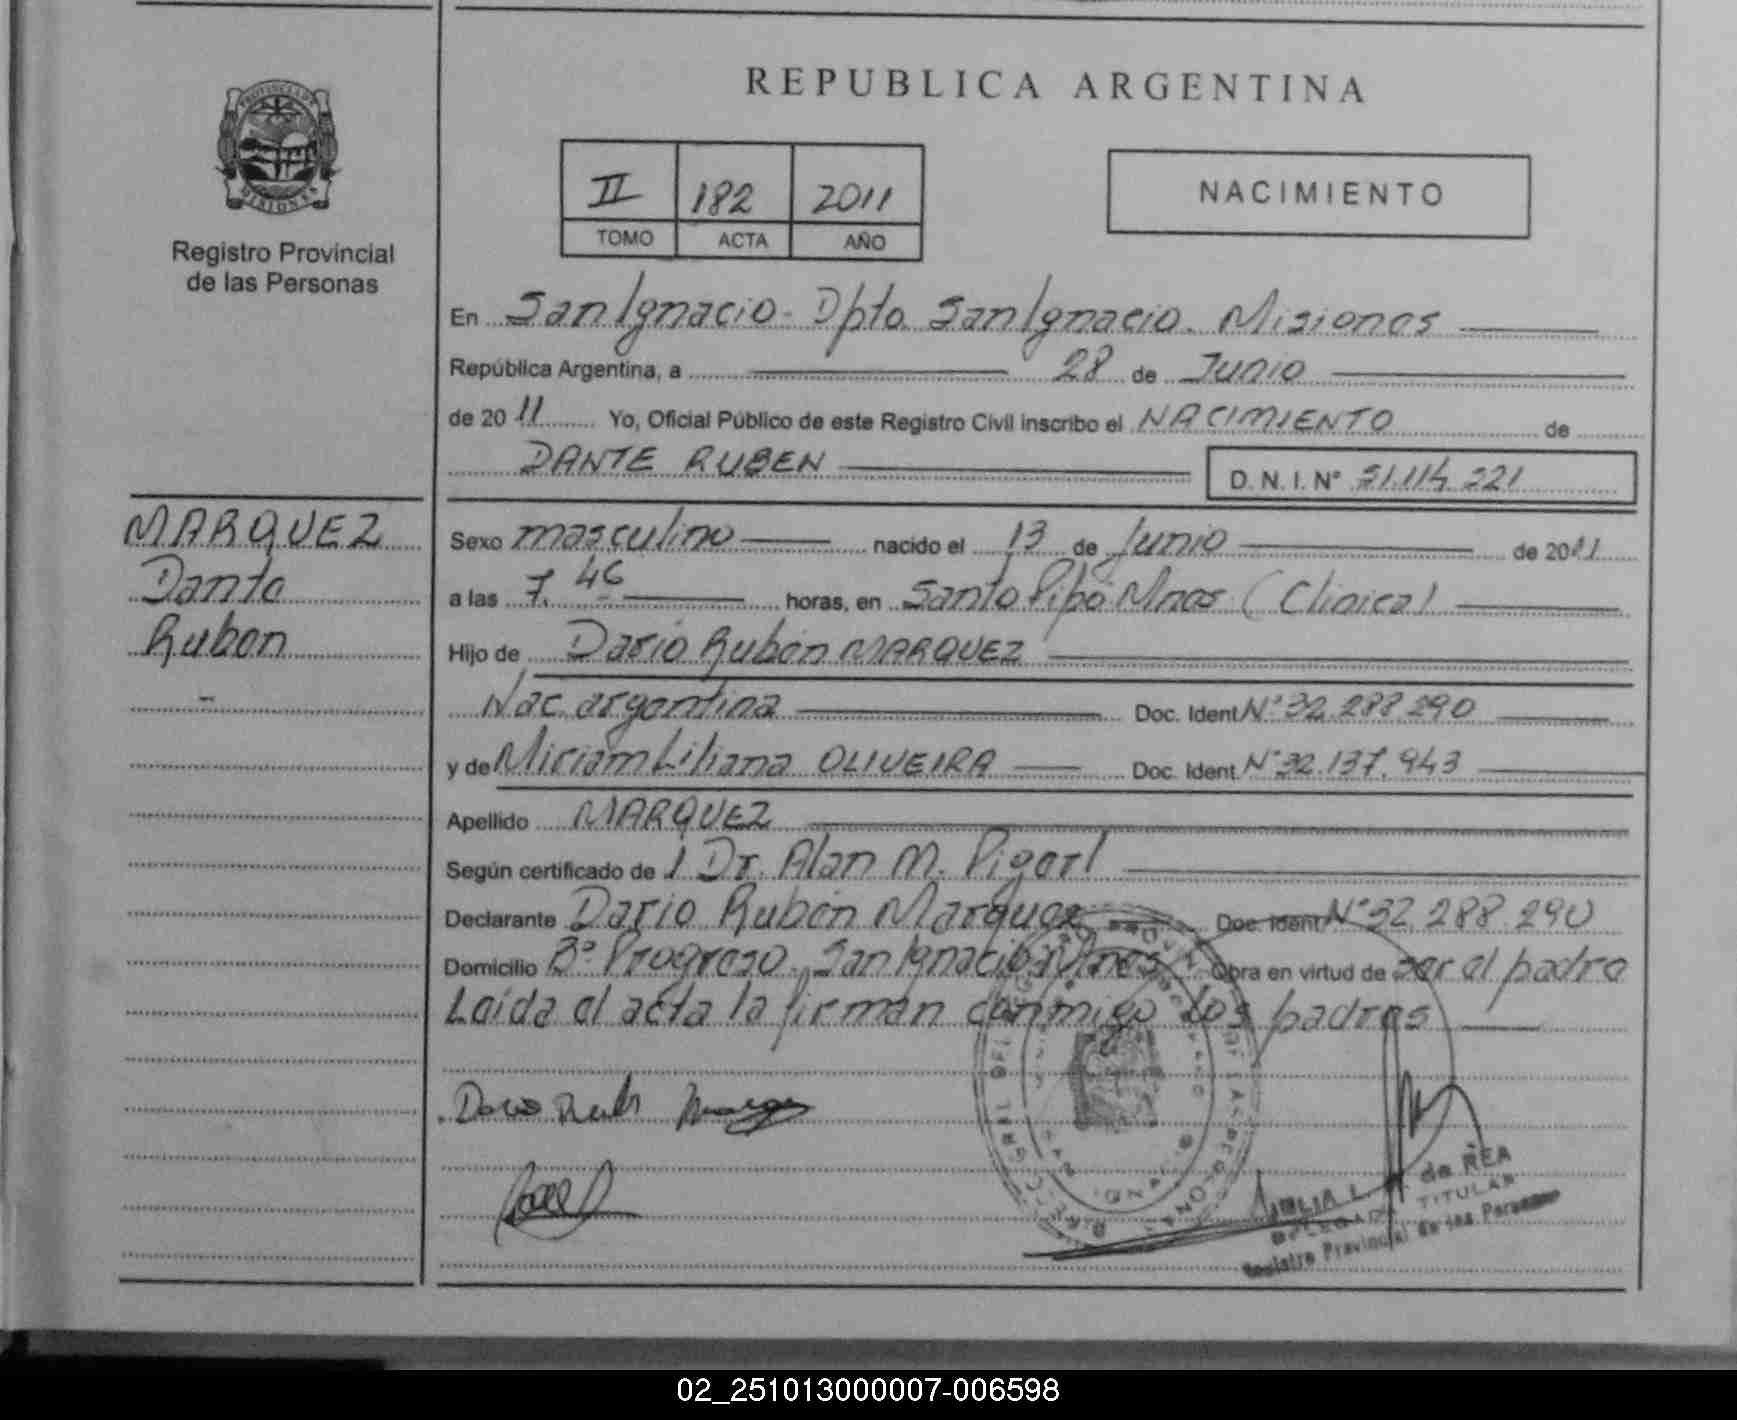 REPUBLICA ARGENTINA
PROVINCIA DE
MISIONES
Registro Provincial
de las Personas
II 182 2011
TOMO ACTA AÑO
NACIMIENTO
En San Ignacio - Dpto San Ignacio. Misiones
República Argentina, a 28 de Junio
de 2011 Yo, Oficial Público de este Registro Civil inscribo el NACIMIENTO de
DANTE RUBEN D. N. I. N° 51.114.221
MARQUEZ
Dante
Ruben
-
Sexo masculino nacido el 13 de Junio de 2011
a las 7.46 horas, en Santo Pipó Mnes (Clínica)
Hijo de Dario Rubén MARQUEZ
Nac. argentina Doc. Ident N° 32.288.290
y de Miriam Liliana OLIVEIRA Doc. Ident N° 32.137.943
Apellido MARQUEZ
Según certificado de Dr. Alan M.
Declarante Dario Rubén Marquez Doc. Ident N° 32.288.290
Domicilio B° Progreso San Ignacio Mnes Obra en virtud de ser el padre
Leída el acta la firman conmigo los padres
de REA
TITULAR
Registro Provincial de las Personas
02_251013000007-006598